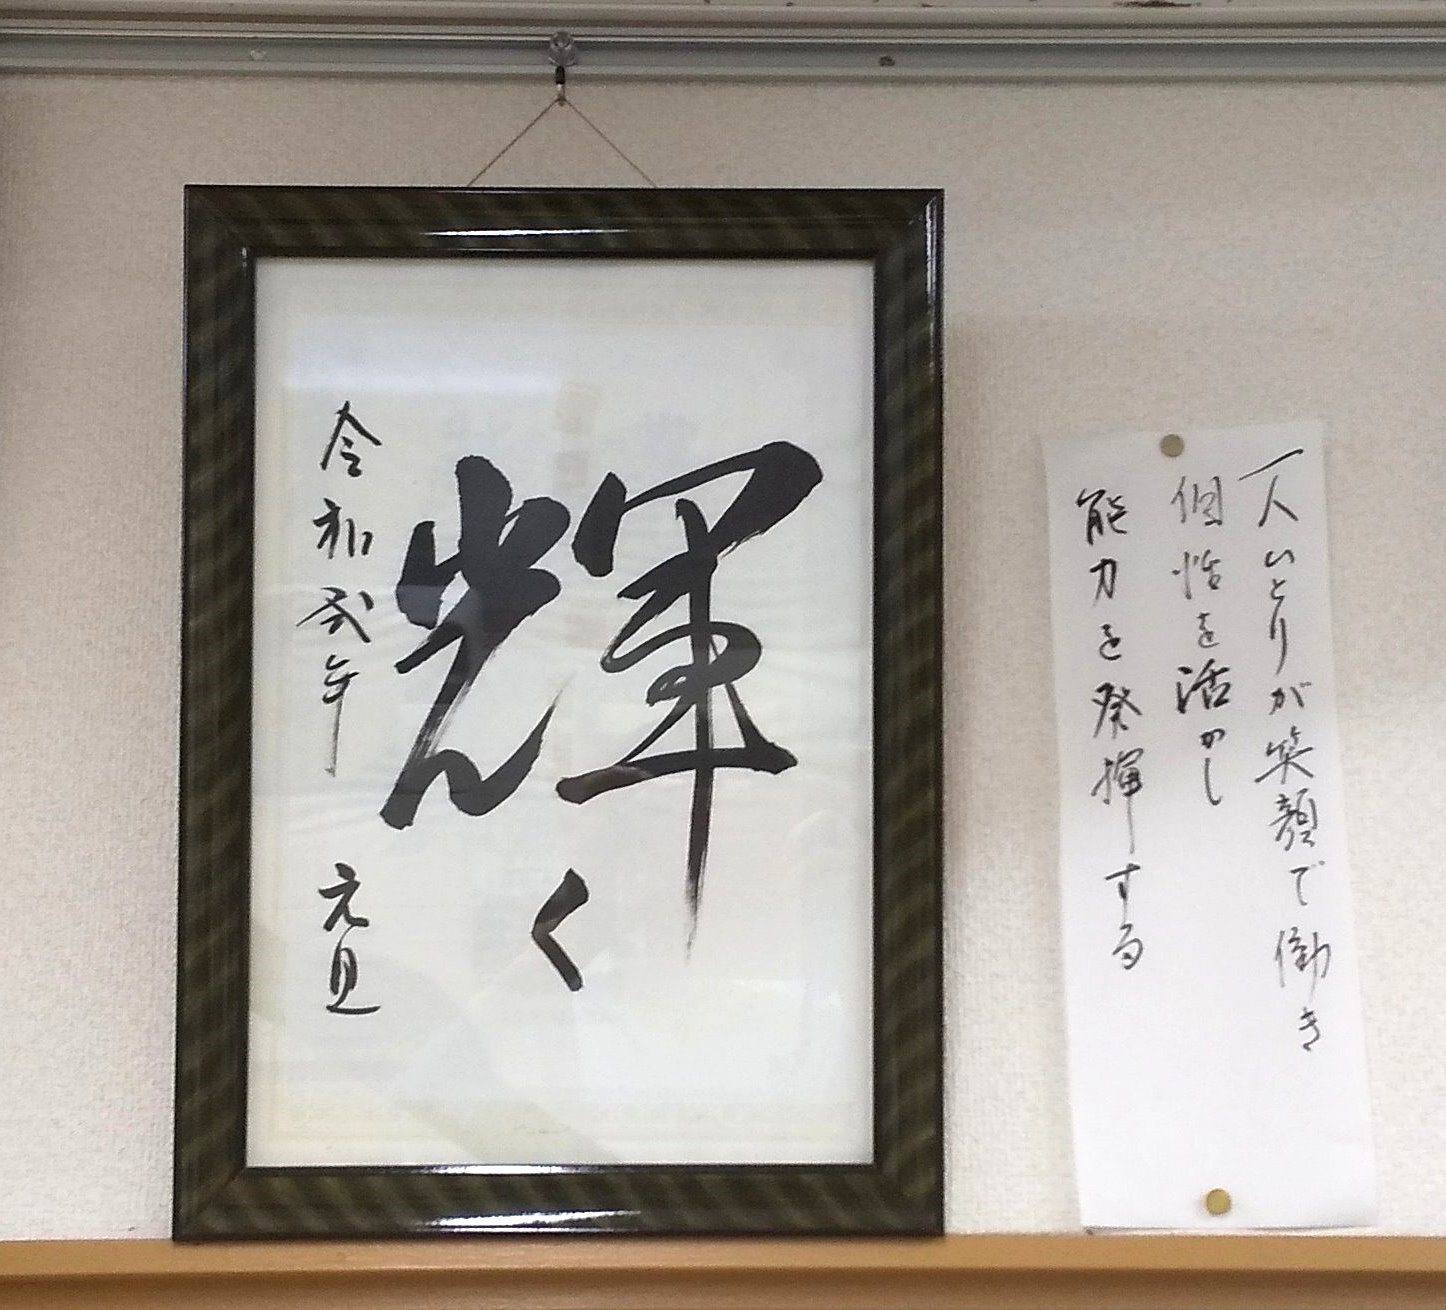 輝く
令和弐年 元旦
一人ひとりが笑顔で働き
個性を活かし
能力を発揮する